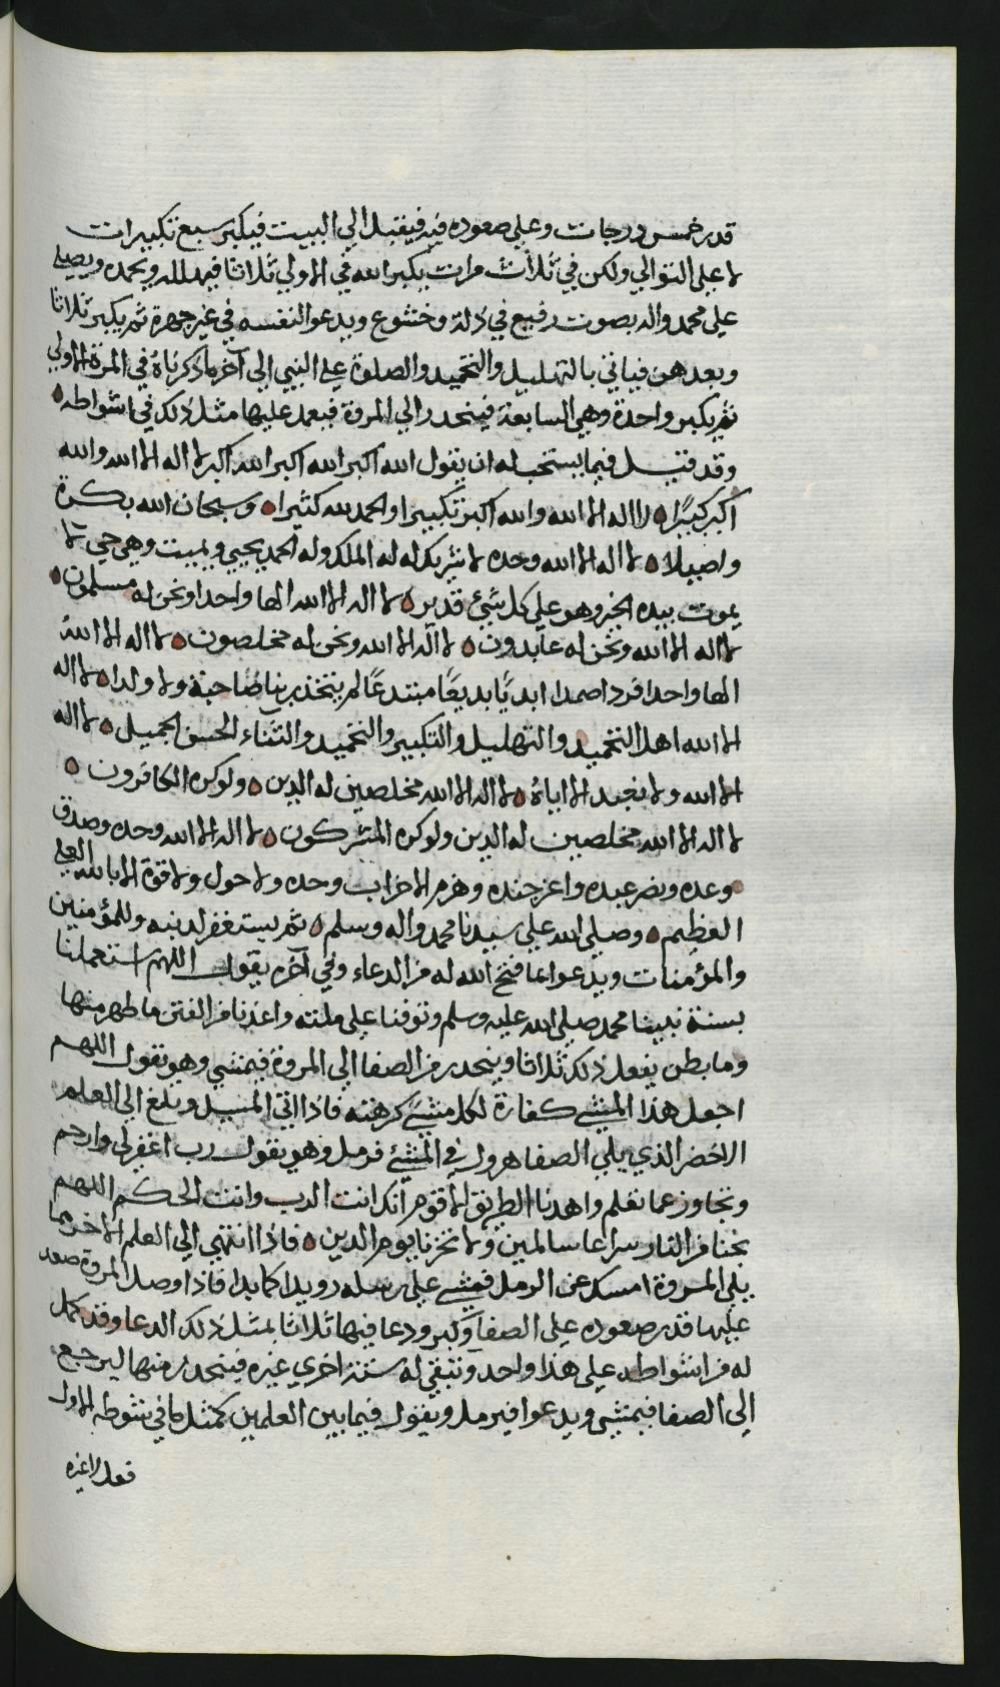 قدر خمس درجات وعلى صعوده فيه فيقبل الي البيت فيكبر سبع تكبيرات
لا علي التوالي ولكن في ثلاث مرات يكبر الله في الاولي ثلاثا فيهلله ويحمده ويصلي
علي محمد واله بصوت رفيع في ذلة وخشوع ويدعو النفسه في غير جهرة ثم يكبر ثلاثا
وبعدهن فياتي بالتهليل والتحميد والصلوة علي النبي الي آخر ما ذكرناه في المرة الاولي
ثم يكبر واحدة وهي السابعة فينحدر الي المروة فيعمد عليها مثل ذلك في اشواطه
وقد قيل فيما يستحب له ان يقول الله اكبر الله اكبر الله اكبر لا اله الا الله والله
اكبر كبيرًا لا اله الا الله والله اكبر تكبيرا والحمد لله كثيرا وسبحان الله بكرة
واصيلا لا اله الا الله وحده لا شريك له له الملك وله الحمد يحيي ويميت وهي حي لا
يموت بيده الخير وهو علي كل شئ قدير لا اله الا الله الها واحدا ونحن له مسلمون
لا اله الا الله ونحن له عابدون لا اله الا الله ونحن له مخلصون لا اله الا الله
الها واحدا فردا صمدا ابديًا بديعًا مبتدعًا لم يتخذ ربنا صاحبة ولا ولدا لا اله
الا الله اهل التحميد والتهليل والتكبير والتحميد والثناء الحسن الجميل لا اله
الا الله ولا نعبد الا اياه لا اله الا الله مخلصين له الدين ولو كره الكافرون
لا اله الا الله مخلصين له الدين ولو كره المشركون لا اله الا الله وحده وصدق
وعده ونصر عبده واعز جنده وهزم الاحزاب وحده ولا حول ولا قوة الا بالله العلي
العظيم وصلي الله علي سيدنا محمد واله وسلم ثم يستغفر لذنبه وللمؤمنين
والمؤمنات ويدعوا بما فتح الله له من الدعاء وفي آخره يقول اللهم استعملنا
بسنة نبينا محمد صلي الله عليه وسلم وتوفنا علي ملته واعذنا من الفتن ما ظهر منها
وما بطن يفعل ذلك ثلاثا وينحدر من الصفا الي المروة فيمشي وهو يقول اللهم
اجعل هذا المشي كفارة لكل مشئ كرهته فاذا اتي المسيل وبلغ الي العلم
الاخضر الذي يلي الصفا هرول في المشئ فرمل وهو يقول رب اغفر لي وارحم
وتجاوز عما تعلم واهدنا الطريق الاقوم انك انت الرب وانت الحكم اللهم
نجنا من النار سراعا سالمين ولا تخزنا يوم الدين فاذا انتهي الي العلم الاخر مما
يلي المروة امسك عن الرمل فمشي علي رسله رويدا كما بدا فاذا وصل المروة صعد
عليها قدر صعوده علي الصفا وكبر ودعا فيها ثلاثا بمثل ذلك الدعا وقد كمل
له من اشواطه علي هذا واحد وتبقي له ستة اخري غيره فينحدر منها ليرجع
الي الصفا فيمشي ويدعوا فيرمل ويقول فيما بين العلمين كمثل ما في شوطه الاول
فعل لا غيره